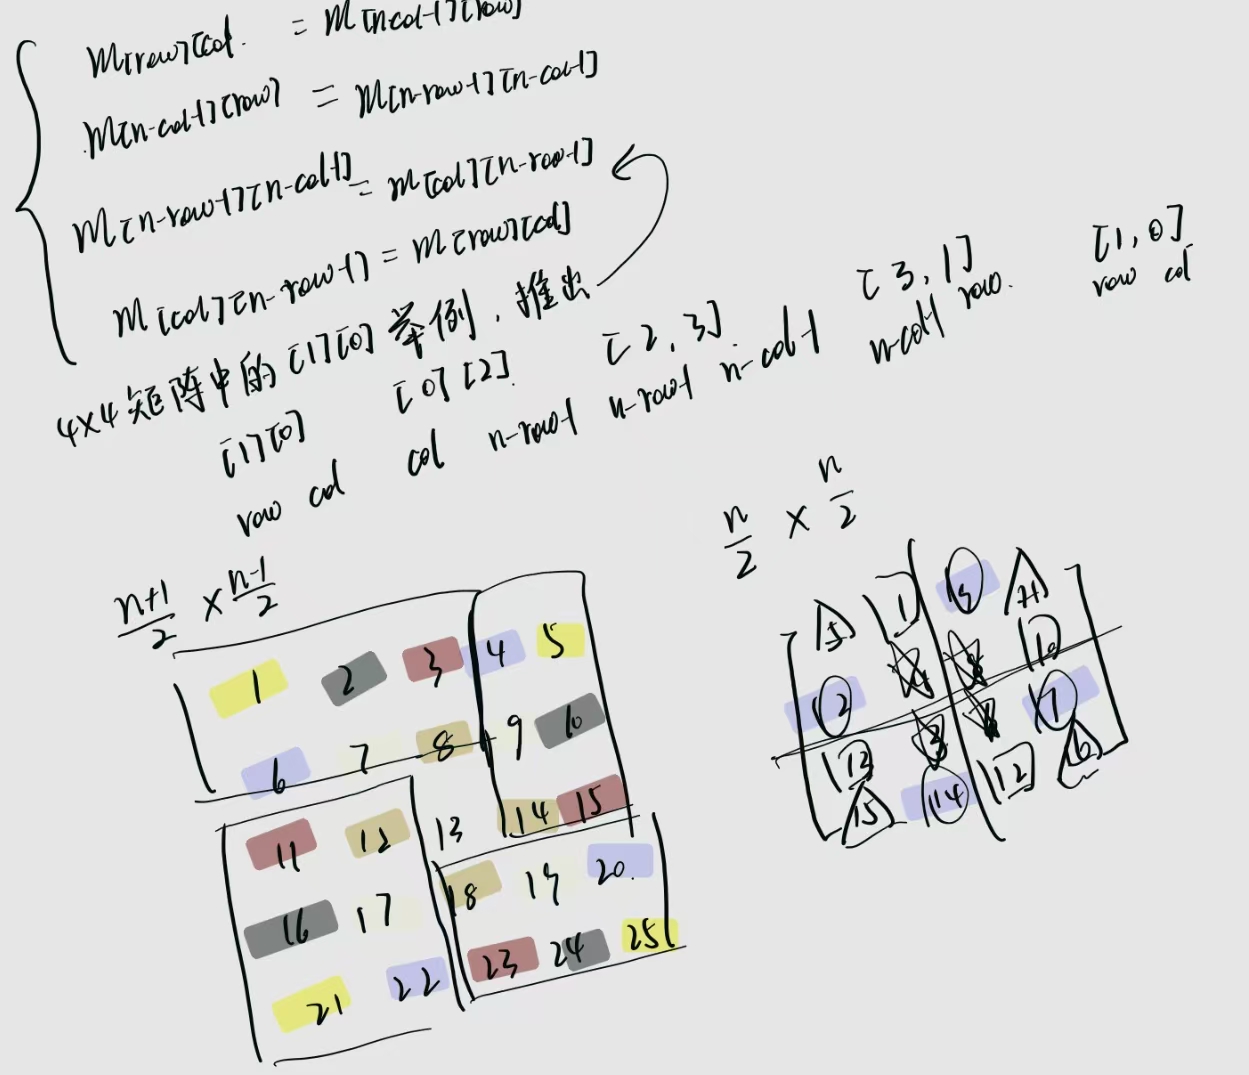 M[row][col. = M[ncol-1][row]
M[n-col-1][row] = M[n-row-1][n-col-1]
M[n-row-1][n-col-1] = M[col][n-row-1]
M[col][n-row-1] = M[row][col]
4×4矩阵中的[1][0]举例,推出
[1][0] [0][2]. [2,3] [3,1] [1,0]
row col col n-row-1 n-row-1 n-col-1 n-col-1 row. row col
n+1/2 × n-1/2
1 2 3 4 5
6 7 8 9 10
11 12 13 14 15
16 17 18 19 20.
21 22 23 24 25
n/2 × n/2
5 1 9 11
2 4 8 10
13 3 6 7
15 14 12 16